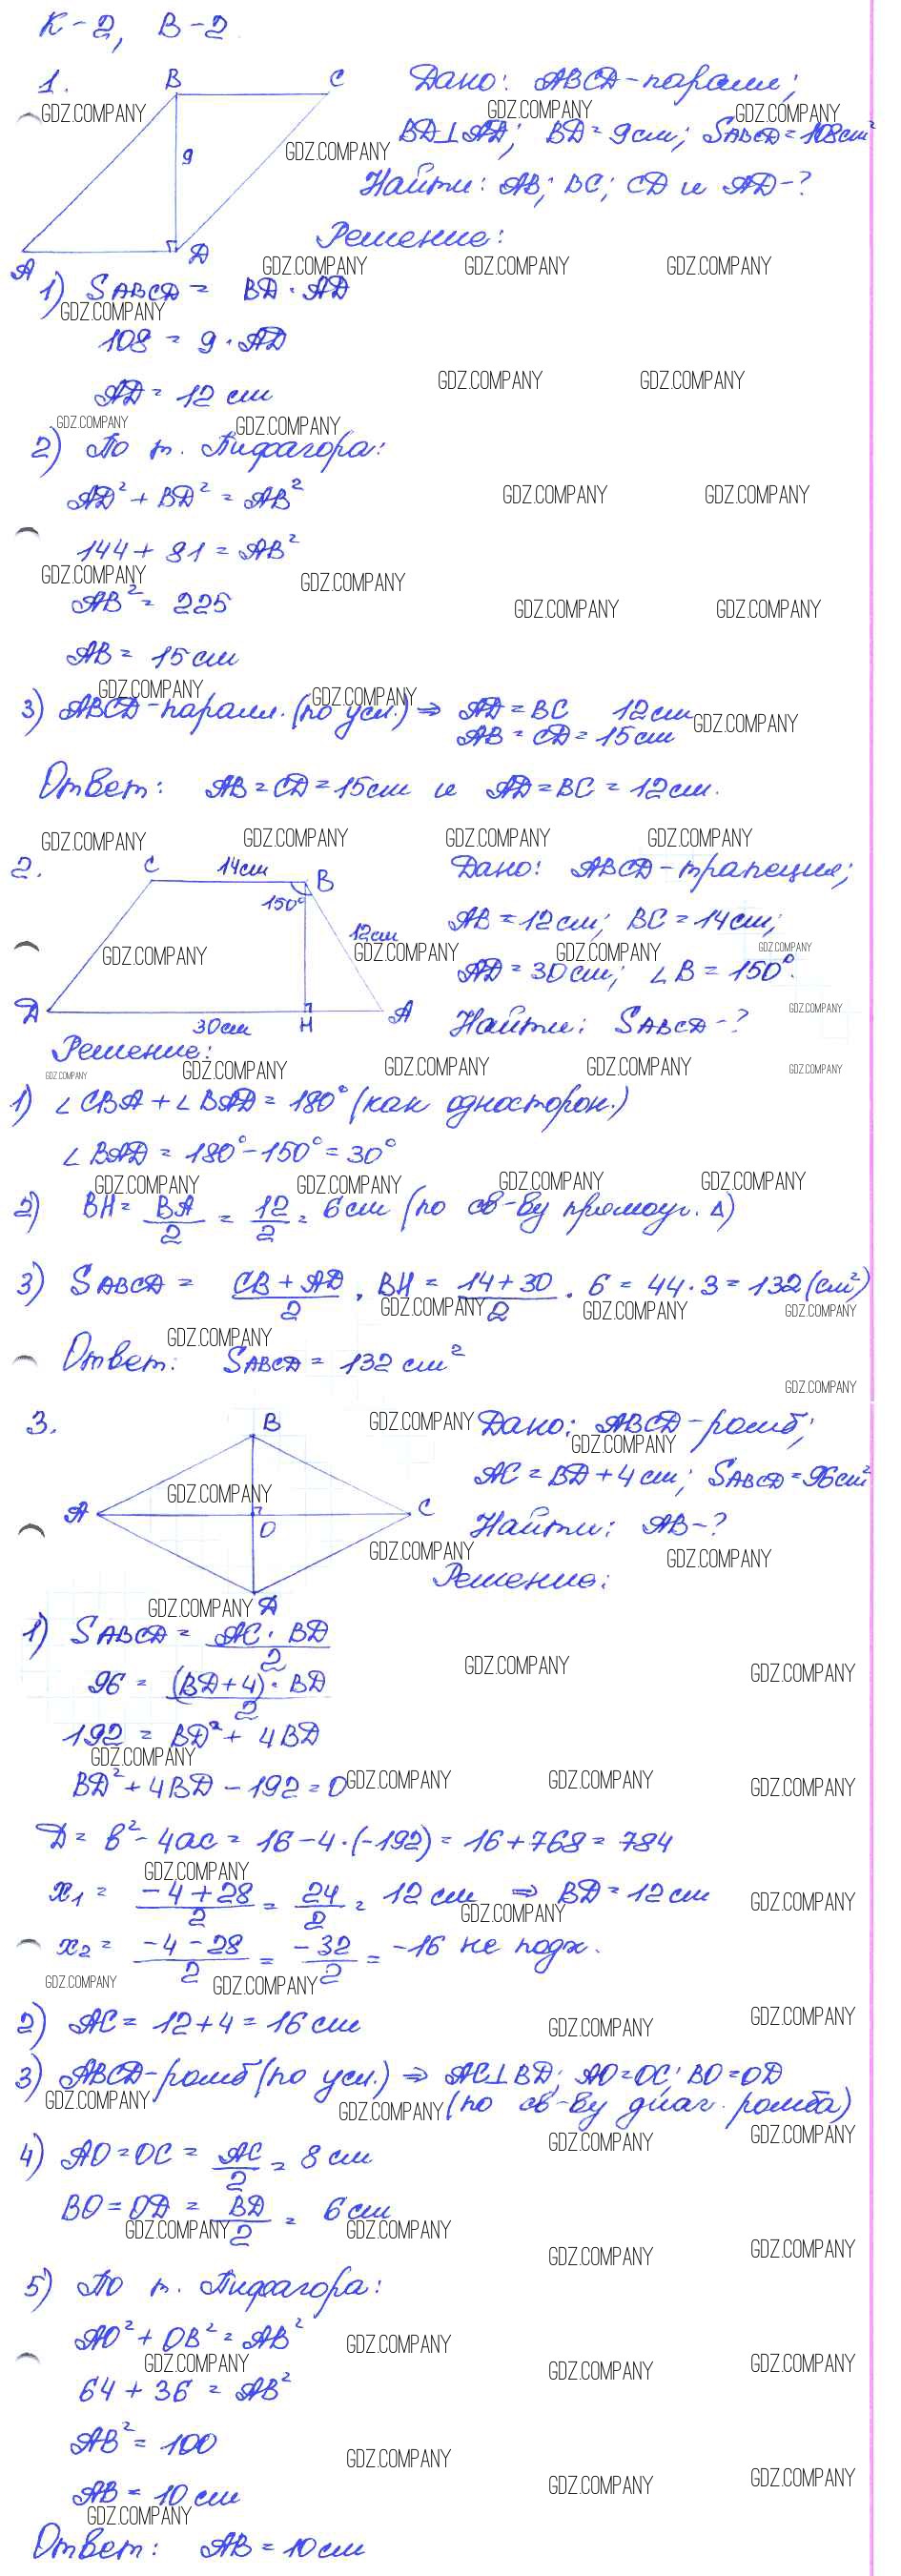 К-2, В-2
1.
B
C
9
A
D
Дано: ABCD-паралл;
BD⊥AD; BD=9см; SABCD=108см²
Найти: AB; BC; CD и AD-?
Решение:
1) SABCD = BD · AD
108 = 9 · AD
AD = 12 см
2) По т. Пифагора:
AD² + BD² = AB²
144 + 81 = AB²
AB² = 225
AB = 15 см
3) ABCD-паралл. (по усл.) ⇒ AD = BC 12см
AB = CD = 15 см
Ответ: AB = CD = 15 см и AD = BC = 12 см.
2.
C
14см
B
150°
12см
D
30см
H
A
Дано: ABCD-трапеция;
AB = 12см; BC = 14см;
AD = 30см; ∠B = 150°.
Найти: SABCD-?
Решение:
1) ∠CBA + ∠BAD = 180° (как односторон.)
∠BAD = 180° - 150° = 30°
2) BH = BA/2 = 12/2 = 6 см (по св-ву прямоуг. Δ)
3) SABCD = (CB + AD)/2 · BH = (14 + 30)/2 · 6 = 44 · 3 = 132 (см²)
Ответ: SABCD = 132 см²
3.
B
A
O
C
D
Дано: ABCD-ромб;
AC = BD + 4 см; SABCD = 96см²
Найти: AB-?
Решение:
1) SABCD = AC · BD/2
96 = (BD+4) · BD/2
192 = BD² + 4BD
BD² + 4BD - 192 = 0
D = b² - 4ac = 16 - 4 · (-192) = 16 + 768 = 784
x1 = (-4 + 28)/2 = 24/2 = 12 см ⇒ BD = 12 см
x2 = (-4 - 28)/2 = -32/2 = -16 не подх.
2) AC = 12 + 4 = 16 см
3) ABCD-ромб (по усл.) ⇒ AC⊥BD; AO=OC; BO=OD
(по св-ву диаг. ромба)
4) AO = OC = AC/2 = 8 см
BO = OD = BD/2 = 6 см
5) По т. Пифагора:
AO² + OB² = AB²
64 + 36 = AB²
AB² = 100
AB = 10 см
Ответ: AB = 10 см
GDZ.COMPANY